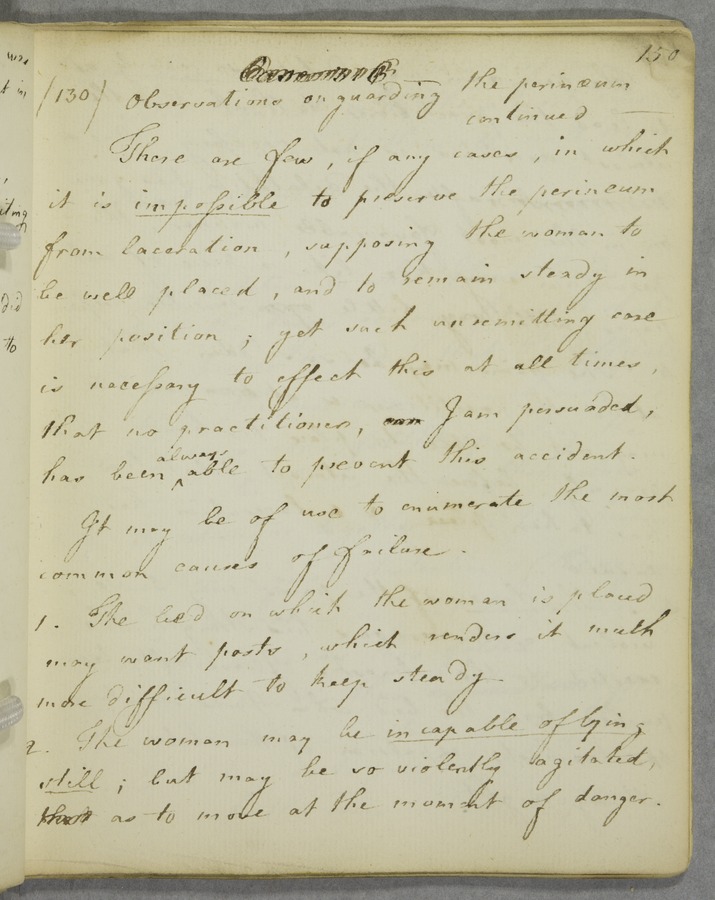 150
/130/ Observations on guarding the perinæum
continued
There are few, if any cases, in which
it is impossible to preserve the perineum
from laceration, supposing the woman to
be well placed, and to remain steady in
her position; yet such unremitting care
is necessary to effect this at all times,
that no practitioner, I am persuaded,
has been always able to prevent this accident.
It may be of use to enumerate the most
common causes of failure.
1. The bed on which the woman is placed
may want posts, which renders it much
more difficult to keep steady
2. The woman may be incapable of lying
still; but may be so violently agitated,
that as to move at the moment of danger.
was
t in
did
to